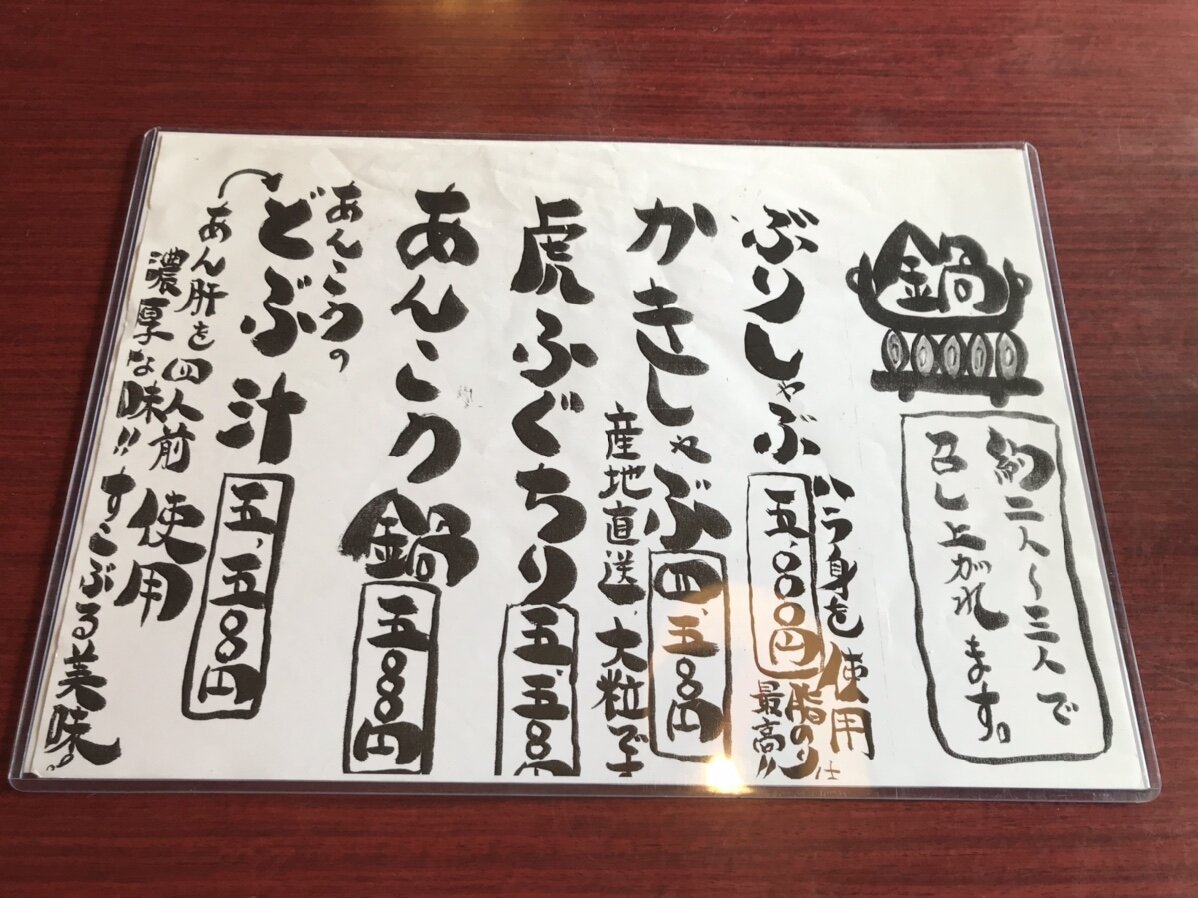 鍋
約二人～三人で
召し上がれます。
ぶりしゃぶ 五,000円
ハラ身を使用
脂のりは
最高!!
かきしゃぶ 四,五00円
産地直送、大粒です
虎ふぐちり 五,五00円
あんこう鍋 五000円
あんこうの
どぶ汁 五,五00円
あん肝を四人前使用
濃厚な味!!すこぶる美味。